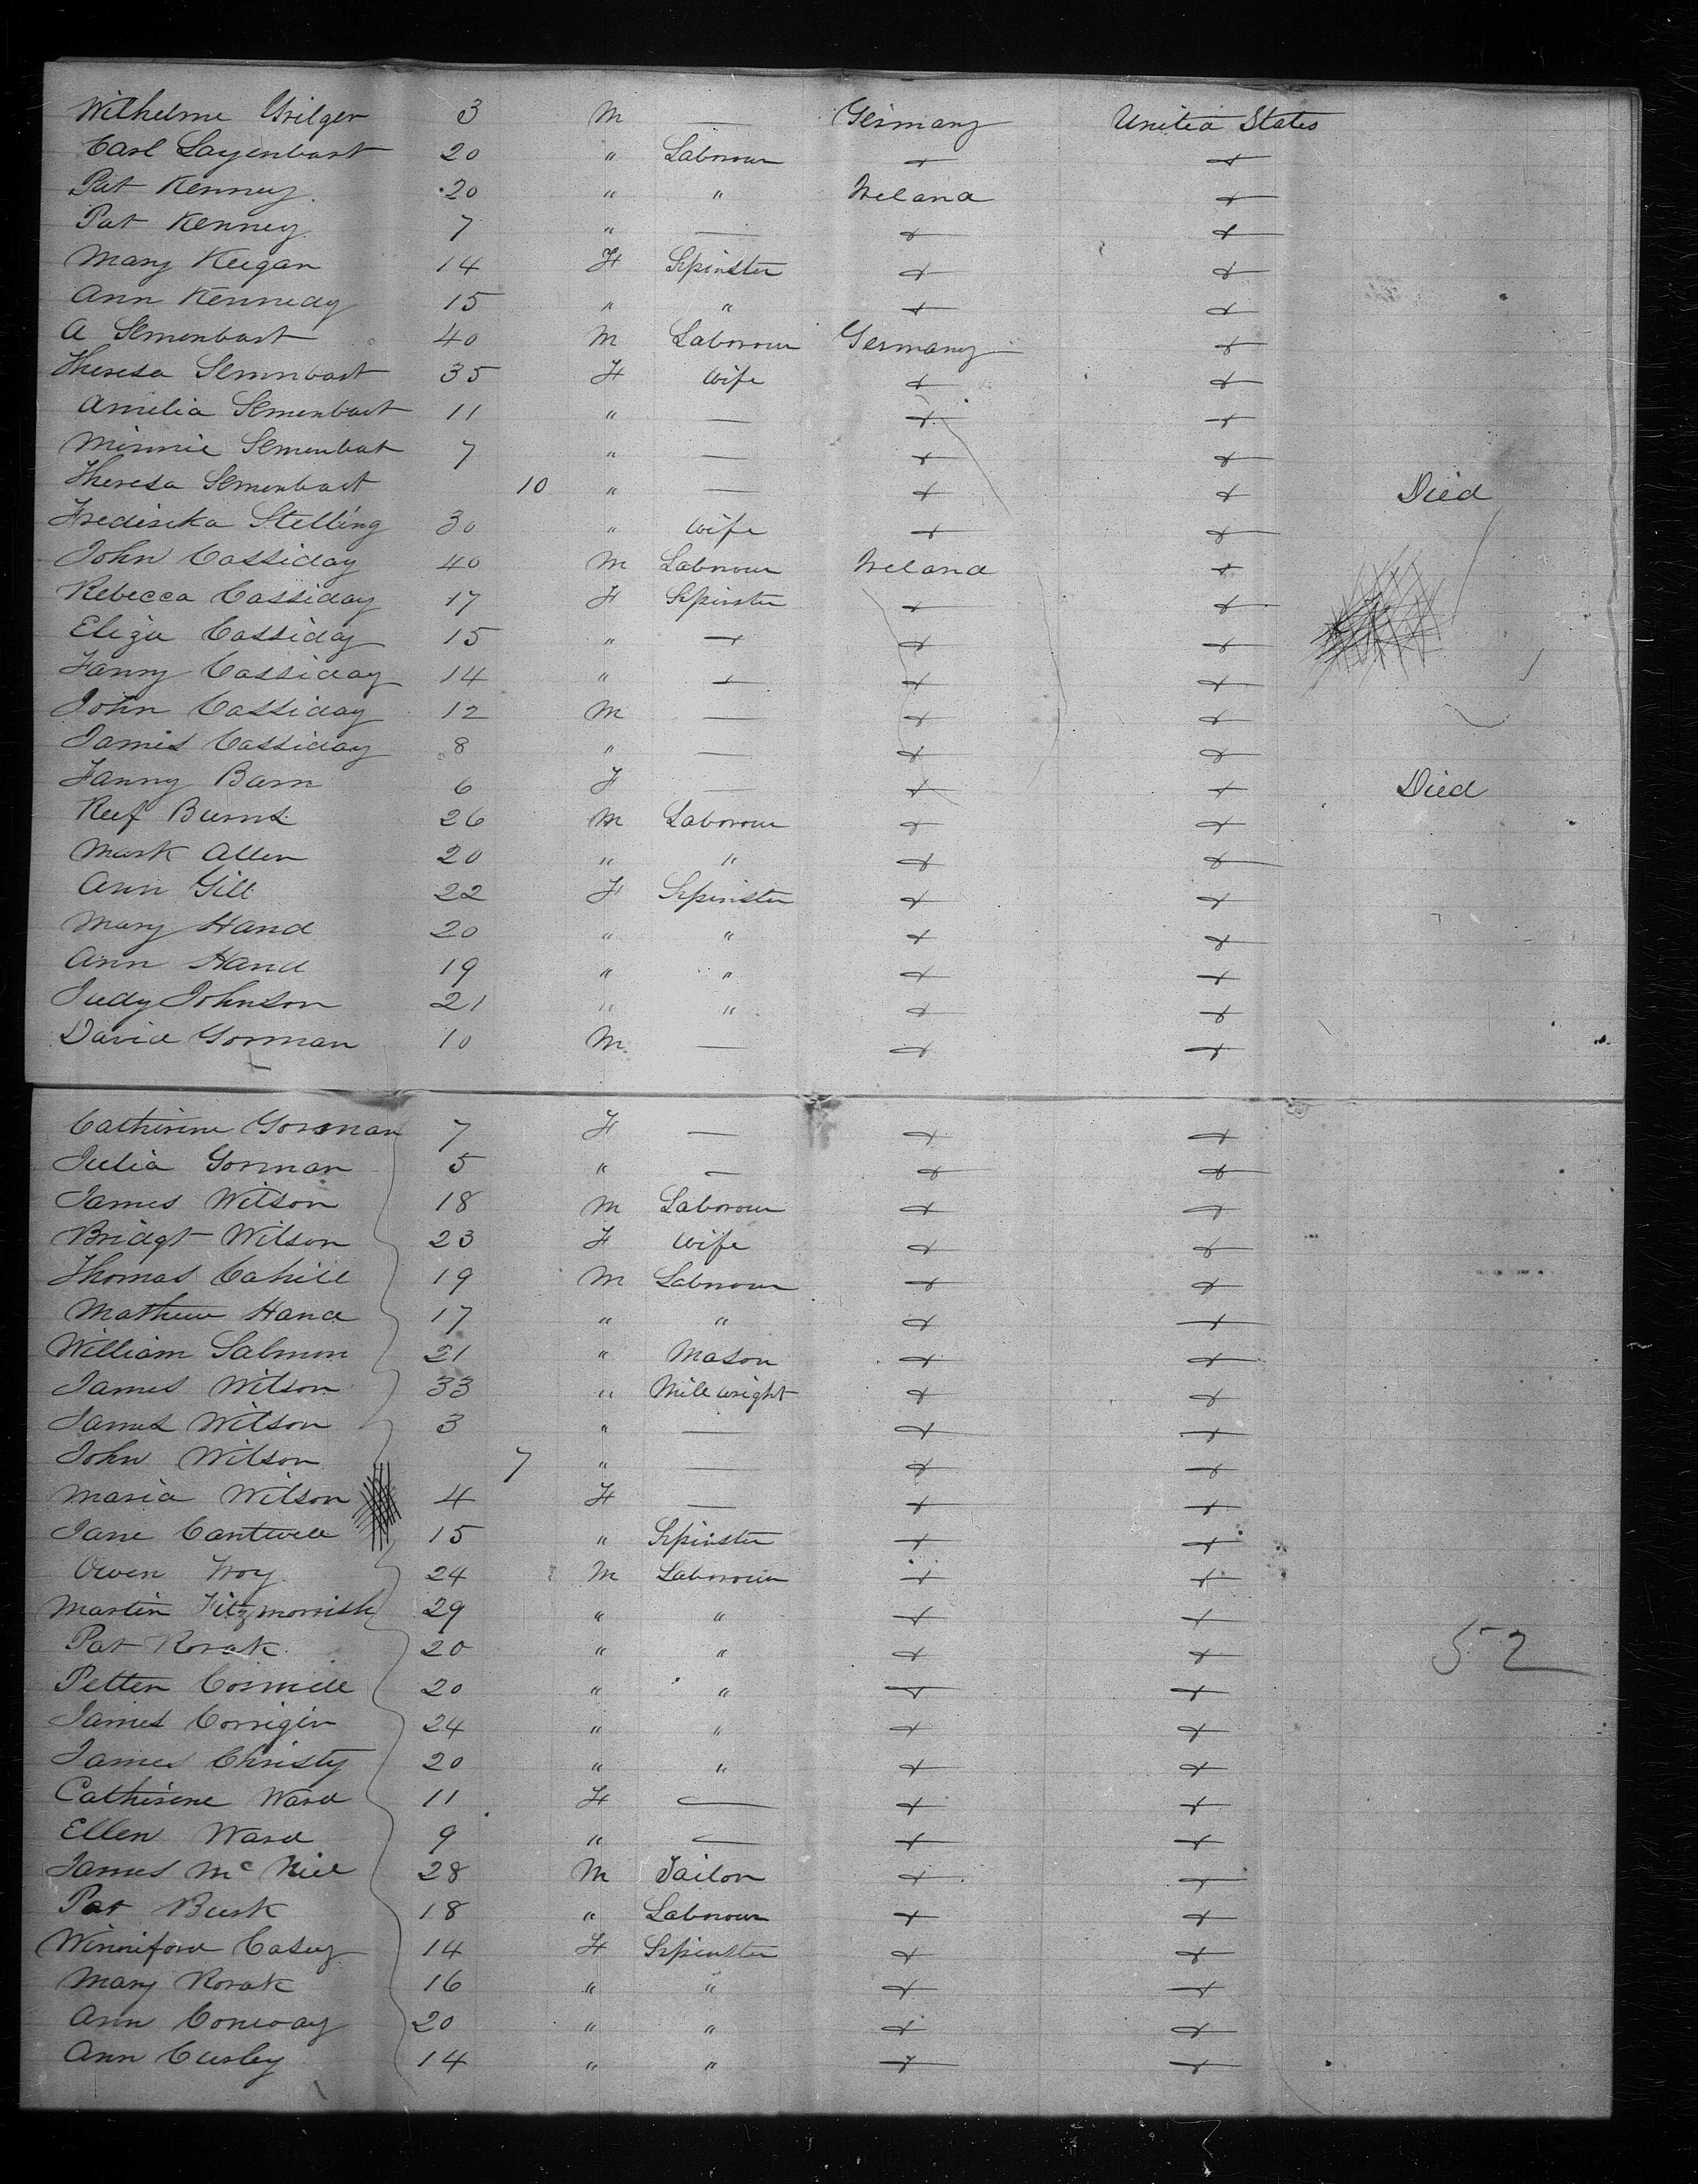 Wilhelme Grilger 3 M — Germany United States
Carl Layenbart 20 " Laborour + +
Pat Kenney 20 " " Ireland +
Pat Kenney 7 " — + +
Mary Keegan 14 F Spinster + +
Ann Kennedy 15 " " + +
A Semenbart 40 M Laborour Germany +
Theresa Semenbart 35 F Wife + +
Amelia Semenbart 11 " — + +
Minnie Semenbart 7 " — + +
Theresa Semenbart 10 " — + + Died
Frederika Stelling 30 " Wife + +
John Cassiday 40 M Laborour Ireland +
Rebecca Cassiday 17 F Spinster + +
Eliza Cassiday 15 " + + +
Fanny Cassiday 14 " + + +
John Cassiday 12 M — + +
James Cassiday 8 " — + +
Fanny Barn 6 F — + + Died
Burns 26 M Laborour + +
Mark Allen 20 " " + +
Ann Gill 22 F Spinster + +
Mary Hand 20 " " + +
Ann Hand 19 " " + +
Judy Johnson 21 " " + +
David Gorman 10 M — + +
Catherine Gorman 7 F — + +
Julia Gorman 5 " — + +
James Wilson 18 M Laborour + +
Bridgt Wilson 23 F Wife + +
Thomas Cahill 19 M Laborour + +
Mathew Hand 17 " " + +
William Salmon 21 " Mason + +
James Wilson 33 " Millwright + +
James Wilson 3 " — + +
John Wilson 7 " — + +
Maria Wilson 4 F — + +
Jane Cantwell 15 " Spinster + +
Owen Troy 24 M Laborour + +
Martin Fitzmorrish 29 " " + +
Pat Rorak 20 " " + + 52
Petter Cormill 20 " " + +
James Corrigin 24 " " + +
James Christy 20 " " + +
Catherine Ward 11 F — + +
Ellen Ward 9 " — + +
James McNiel 28 M Tailor + +
Pat Burk 18 " Laborour + +
Winniford Casey 14 F Spinster + +
Mary Rorak 16 " " + +
Ann Conway 20 " " + +
Ann Cusley 14 " " + +